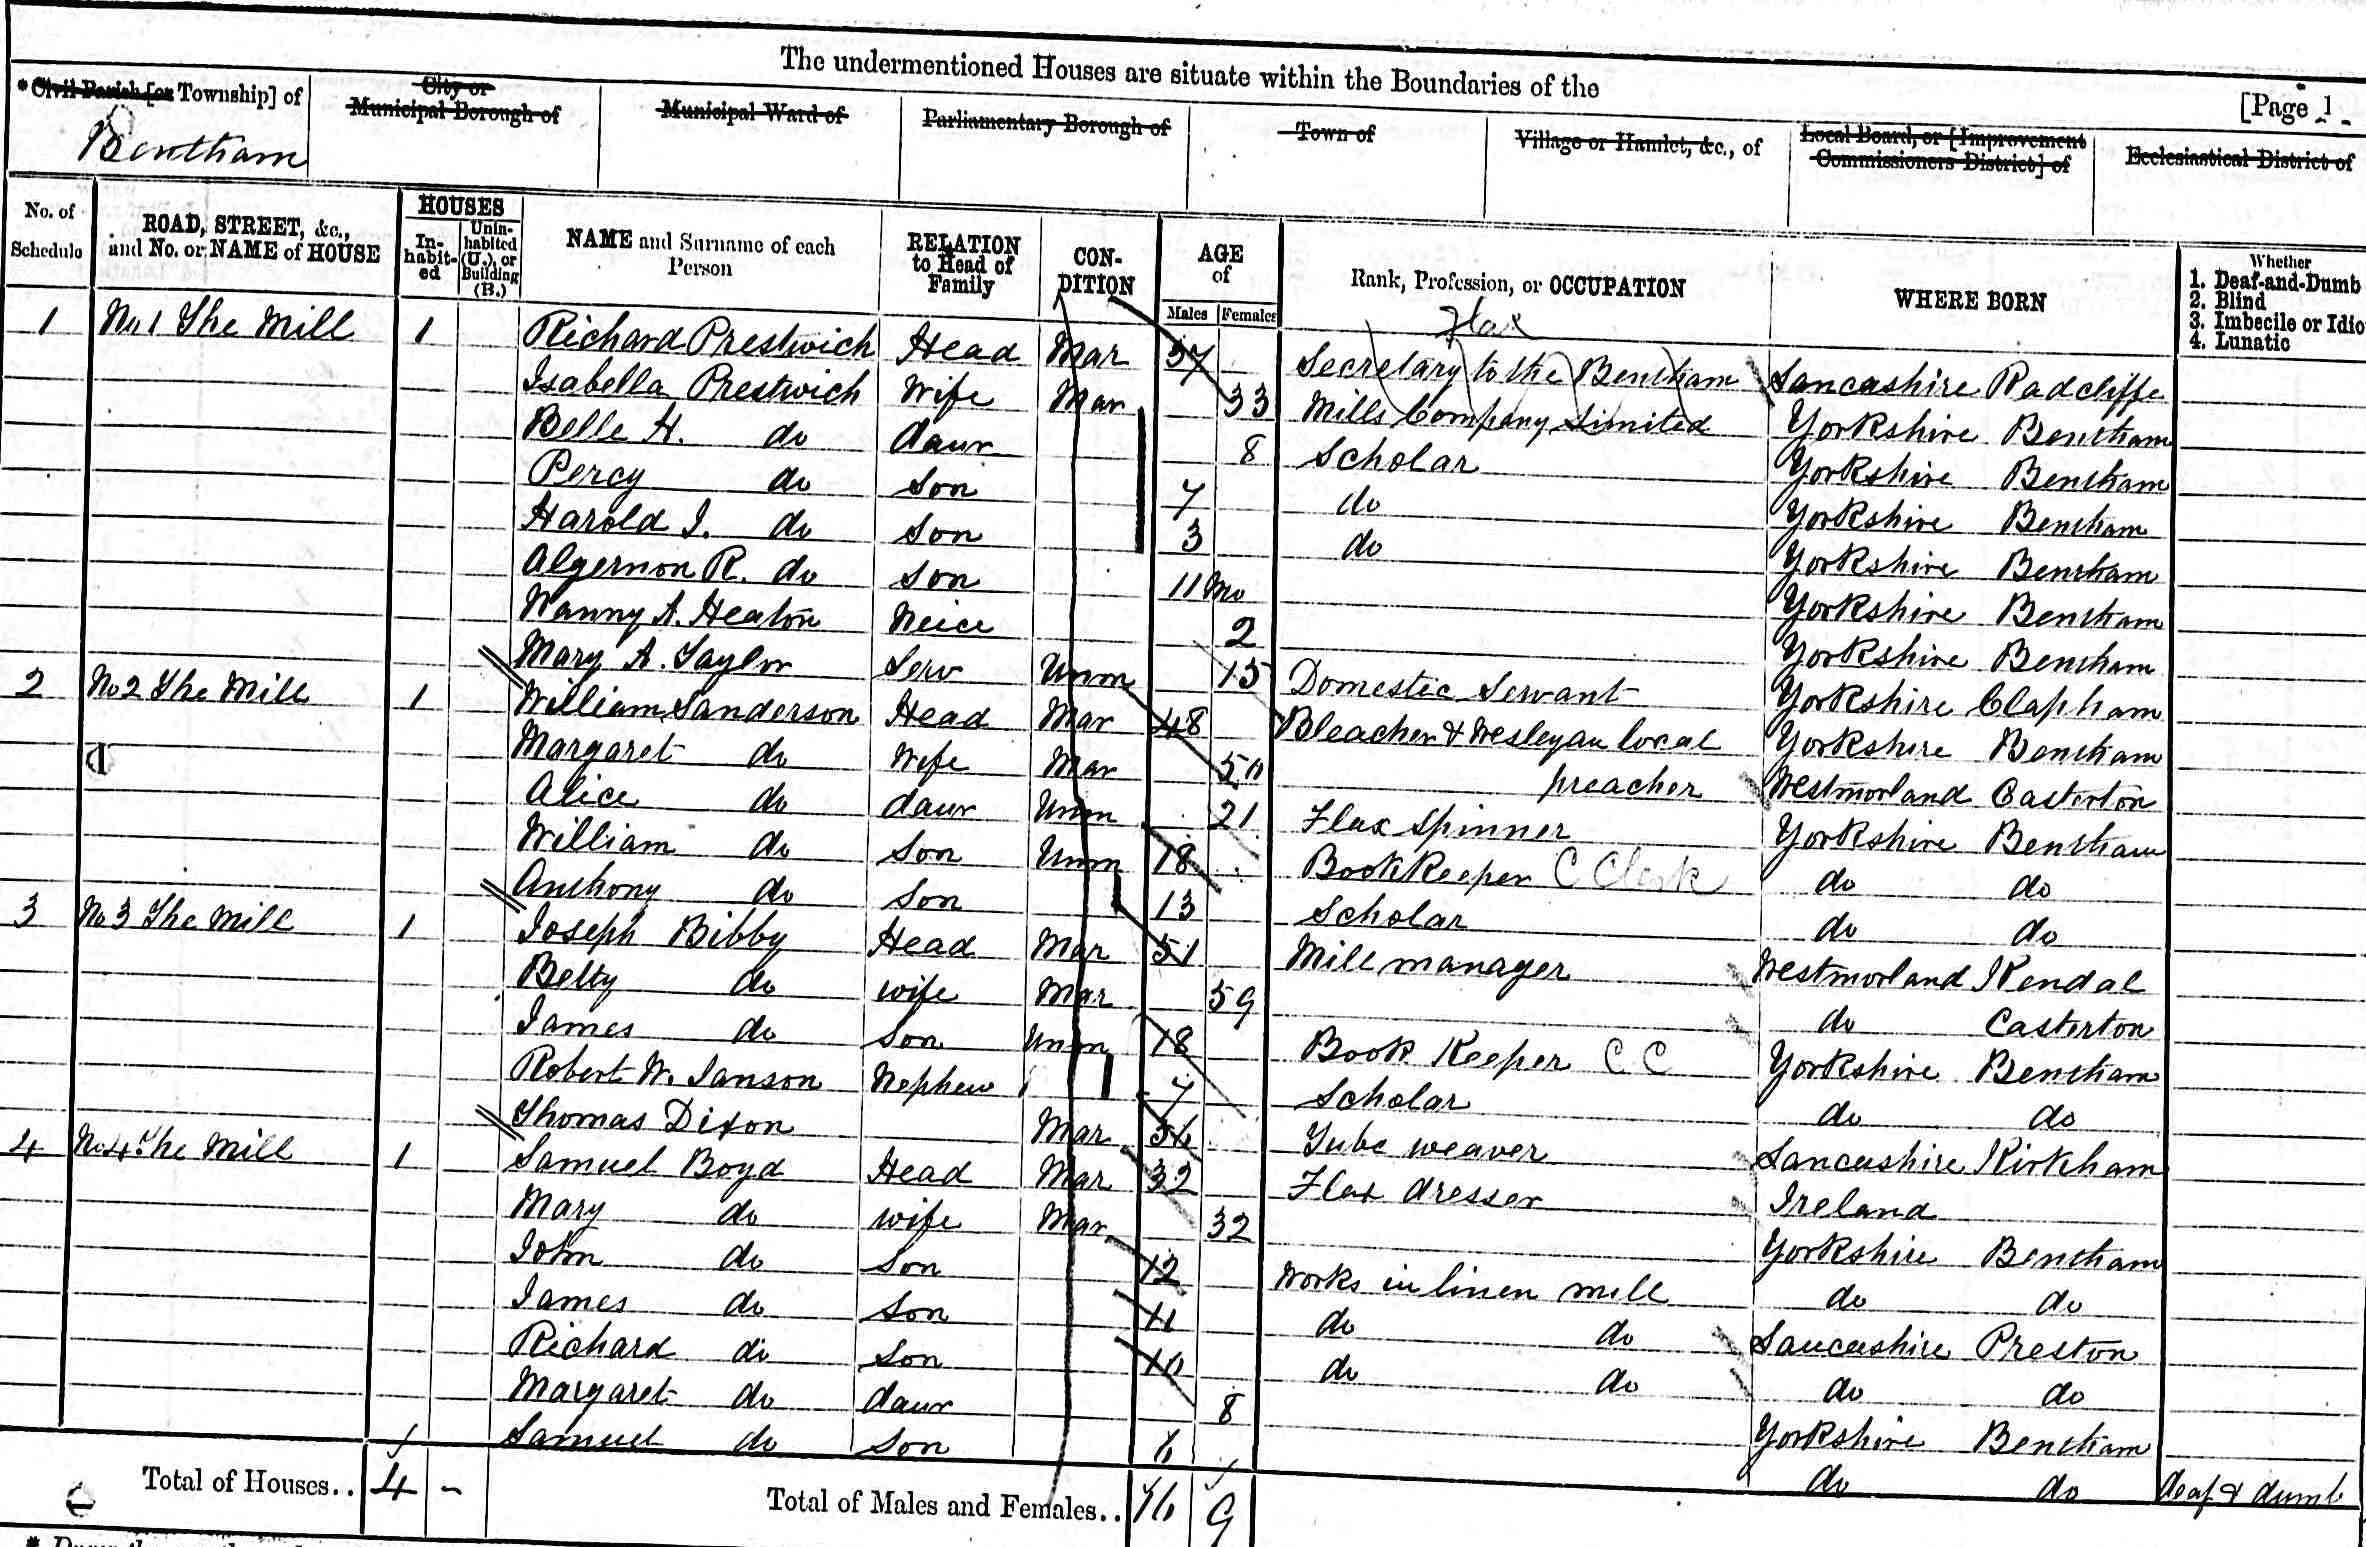 The undermentioned Houses are situate within the Boundaries of the
[Page 1
* Civil Parish [or Township] of
City or Municipal Borough of
Municipal Ward of
Parliamentary Borough of
Town of
Village or Hamlet, &c., of
Local Board, or [Improvement Commissioners District] of
Ecclesiastical District of
Bentham
No. of Schedule
ROAD, STREET, &c., and No. or NAME of HOUSE
HOUSES
In-habit-ed
Unin-habited (U.), or Building (B.)
NAME and Surname of each Person
RELATION to Head of Family
CON-DITION
AGE of
Males
Females
Rank, Profession, or OCCUPATION
WHERE BORN
Whether
1. Deaf-and-Dumb
2. Blind
3. Imbecile or Idio
4. Lunatic
Flax
1 No 1 The Mill 1 Richard Prestwich Head Mar 37 Secretary to the Bentham Lancashire Radcliffe
Isabella Prestwich Wife Mar 33 Mills Company Limited Yorkshire Bentham
Belle H. do daur 8 Scholar Yorkshire Bentham
Percy do Son 7 do Yorkshire Bentham
Harold J. do Son 3 do Yorkshire Bentham
Algernon R. do Son 11 Mo Yorkshire Bentham
Nanny A. Heaton Neice 2 Yorkshire Bentham
Mary A. Taylor Serv Unm 15 Domestic Servant Yorkshire Clapham
2 No 2 The Mill 1 William Sanderson Head Mar 48 Bleacher & Wesleyan local Yorkshire Bentham
Margaret do Wife Mar 50 preacher Westmorland Casterton
Alice do daur Unm 21 Flax Spinner Yorkshire Bentham
William do Son Unm 18 Bookkeeper C Clerk do do
Anthony do Son 13 Scholar do do
3 No 3 The Mill 1 Joseph Bibby Head Mar 51 Mill manager Westmorland Kendal
Betty do wife Mar 59 do Casterton
James do Son Unm 18 Book Keeper C C Yorkshire Bentham
Robert W. Janson Nephew 7 Scholar do do
Thomas Dixon Mar 56 Tube weaver Lancashire Kirkham
4 No 4 The Mill 1 Samuel Boyd Head Mar 32 Flax dresser Ireland
Mary do wife Mar 32 Yorkshire Bentham
John do Son 12 Works in linen mill do do
James do Son 11 do do Lancashire Preston
Richard do Son 10 do do do do
Margaret do daur 8 Yorkshire Bentham
Samuel do Son 6 do do deaf & dumb
Total of Houses.. 4 - Total of Males and Females.. 16 9